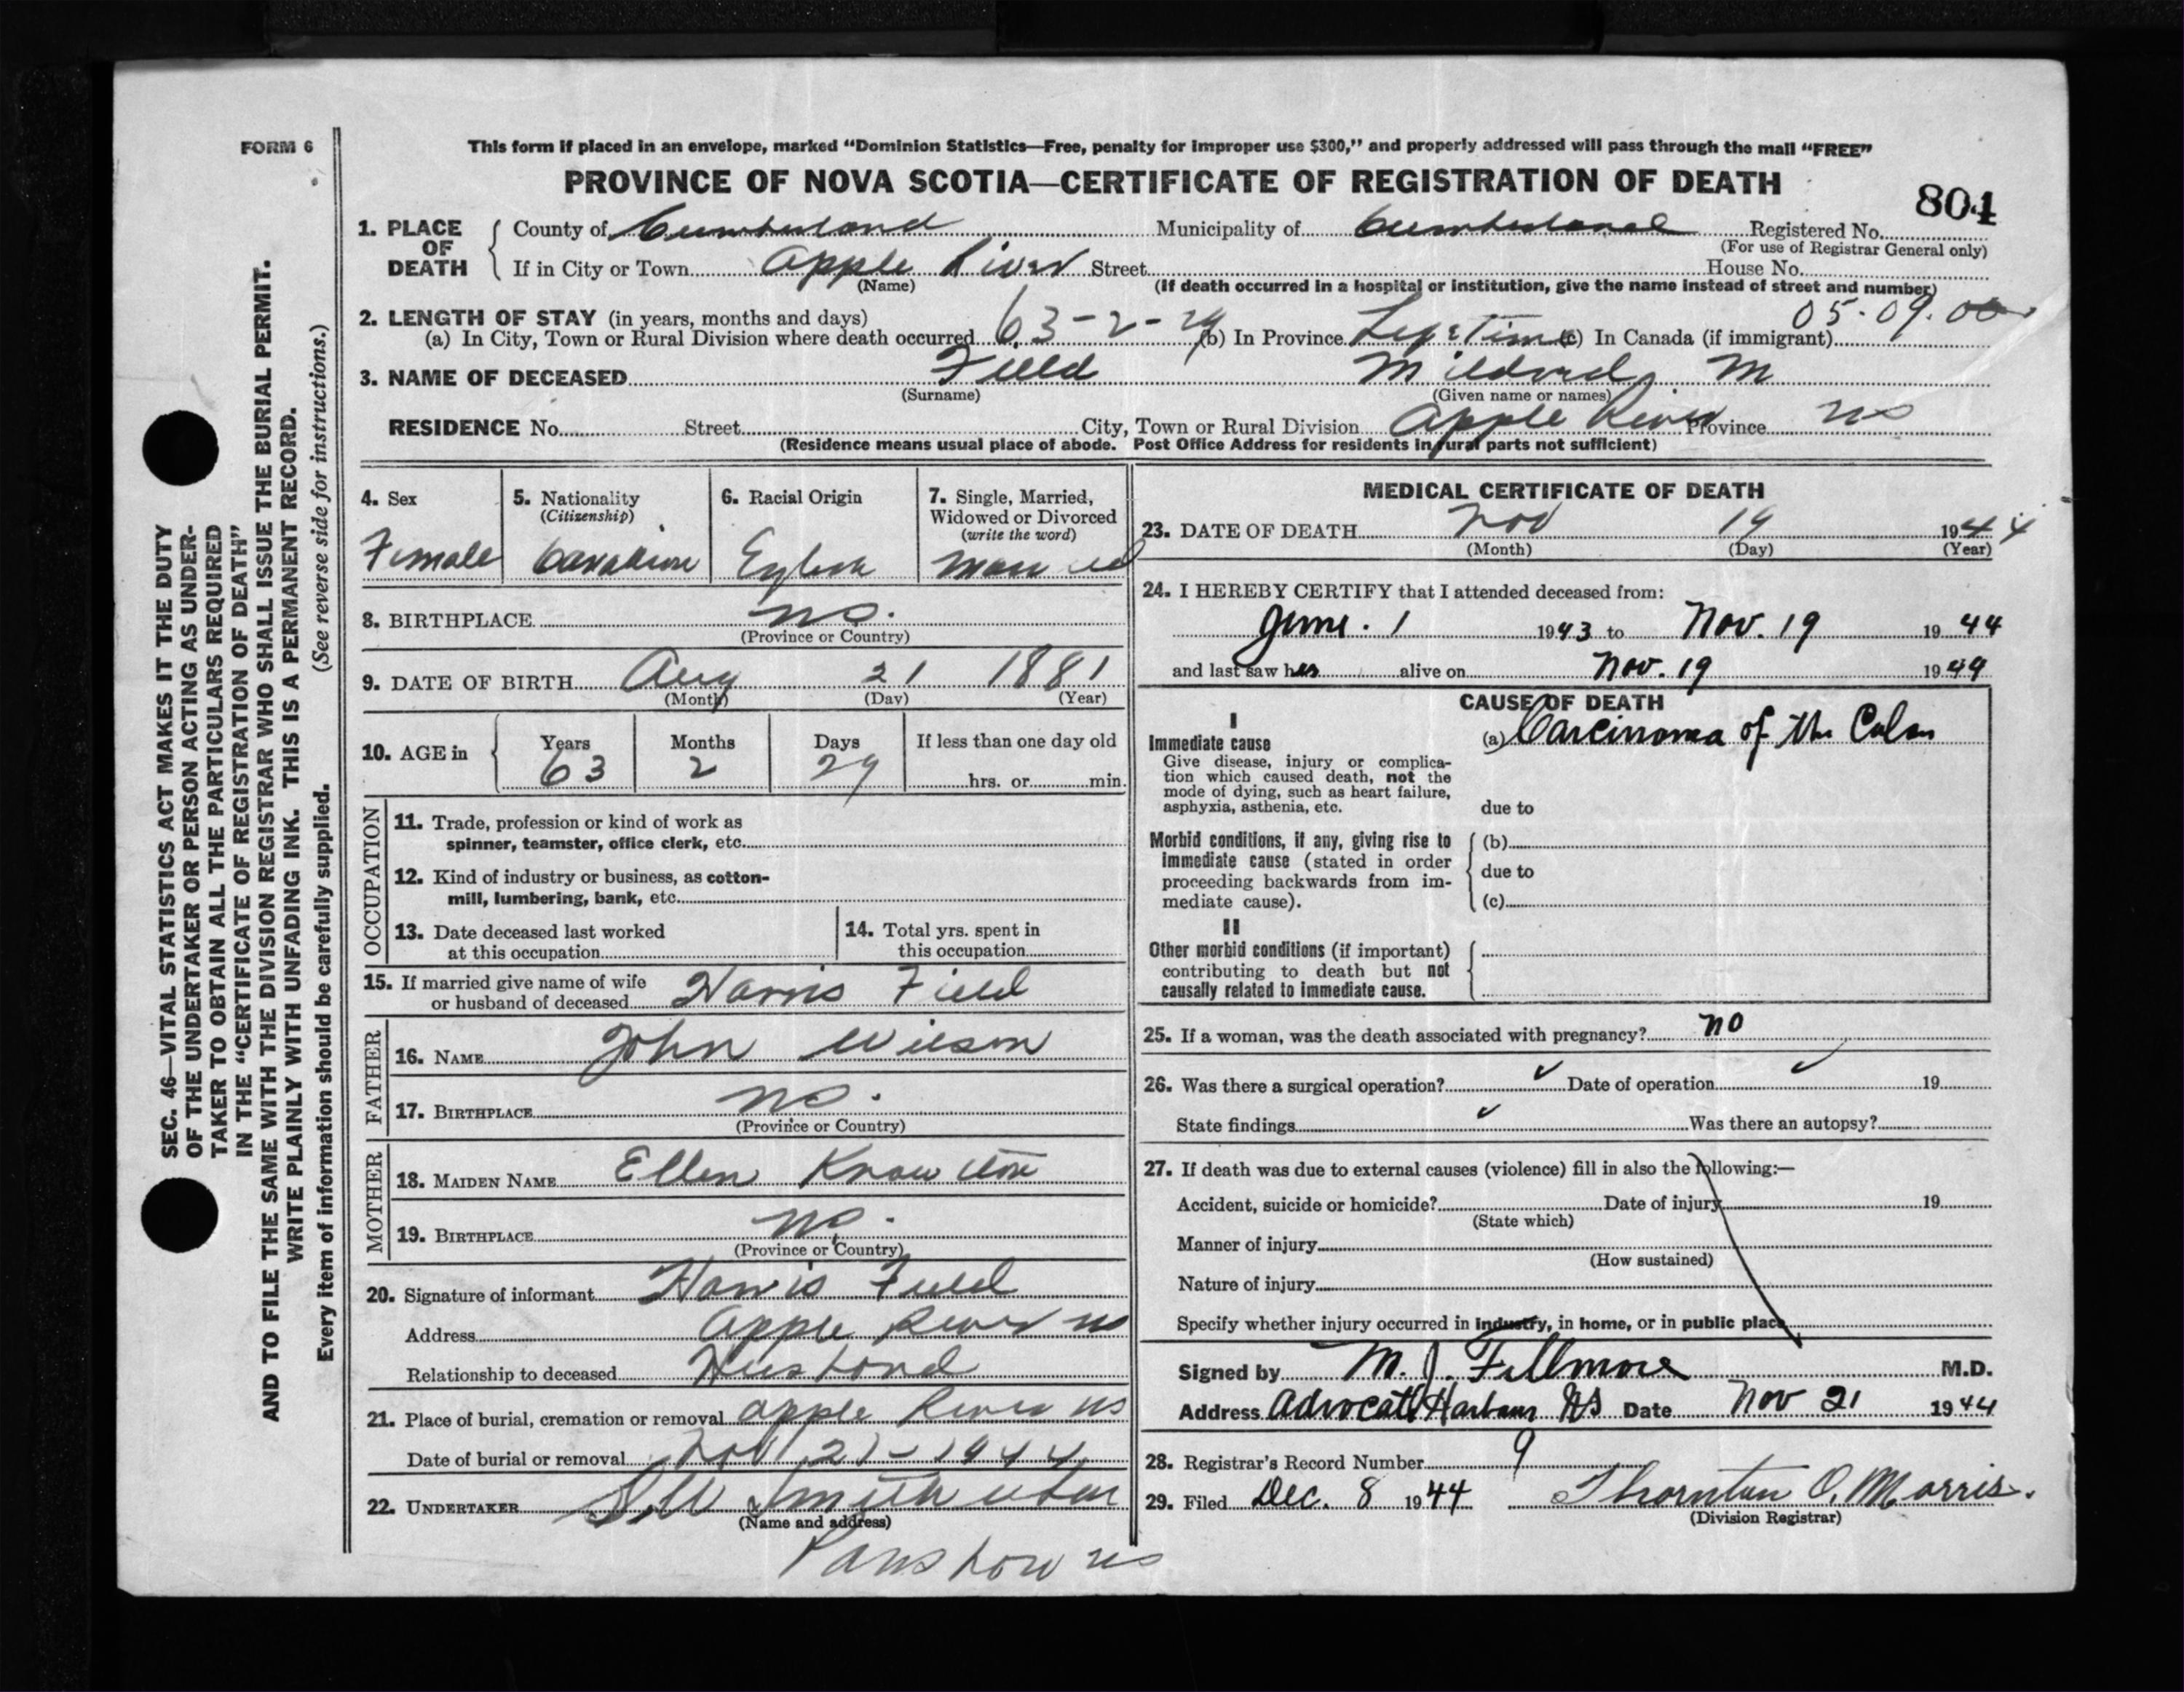 FORM 6
This form if placed in an envelope, marked “Dominion Statistics—Free, penalty for improper use $300,” and properly addressed will pass through the mail “FREE”
PROVINCE OF NOVA SCOTIA—CERTIFICATE OF REGISTRATION OF DEATH
804
1. PLACE OF DEATH
County of Cumberland Municipality of Cumberland Registered No.
(For use of Registrar General only)
If in City or Town Apple River Street House No.
(Name) (If death occurred in a hospital or institution, give the name instead of street and number)
05.09.00
2. LENGTH OF STAY (in years, months and days)
(a) In City, Town or Rural Division where death occurred 63-2-29 (b) In Province Life Time (c) In Canada (if immigrant)
3. NAME OF DECEASED Field Mildred M
(Surname) (Given name or names)
RESIDENCE No. Street City, Town or Rural Division Apple River Province NS
(Residence means usual place of abode. Post Office Address for residents in rural parts not sufficient)
4. Sex
Female
5. Nationality
(Citizenship)
Canadian
6. Racial Origin
English
7. Single, Married,
Widowed or Divorced
(write the word)
Married
8. BIRTHPLACE NS.
(Province or Country)
9. DATE OF BIRTH Aug 21 1881
(Month) (Day) (Year)
10. AGE in
Years Months Days If less than one day old
63 2 29 hrs. or min.
OCCUPATION
11. Trade, profession or kind of work as
spinner, teamster, office clerk, etc.
12. Kind of industry or business, as cotton-
mill, lumbering, bank, etc.
13. Date deceased last worked
at this occupation
14. Total yrs. spent in
this occupation
15. If married give name of wife
or husband of deceased Harris Field
FATHER
16. NAME John Wilson
17. BIRTHPLACE NS.
(Province or Country)
MOTHER
18. MAIDEN NAME Ellen Knowlton
19. BIRTHPLACE NS.
(Province or Country)
20. Signature of informant Harris Field
Address Apple River NS
Relationship to deceased Husband
21. Place of burial, cremation or removal Apple River NS
Date of burial or removal Nov 21-1944
22. UNDERTAKER Smith
(Name and address)
Parrsboro NS
MEDICAL CERTIFICATE OF DEATH
23. DATE OF DEATH Nov 19 1944
(Month) (Day) (Year)
24. I HEREBY CERTIFY that I attended deceased from:
June. 1 1943 to Nov. 19 1944
and last saw her alive on Nov. 19 1944
CAUSE OF DEATH
I
Immediate cause
Give disease, injury or complica-
tion which caused death, not the
mode of dying, such as heart failure,
asphyxia, asthenia, etc.
(a) Carcinoma of the Colon
due to
Morbid conditions, if any, giving rise to
immediate cause (stated in order
proceeding backwards from im-
mediate cause).
(b)
due to
(c)
II
Other morbid conditions (if important)
contributing to death but not
causally related to immediate cause.
25. If a woman, was the death associated with pregnancy? no
26. Was there a surgical operation? ✓ Date of operation ✓ 19
State findings ✓ Was there an autopsy?
27. If death was due to external causes (violence) fill in also the following:—
Accident, suicide or homicide? Date of injury 19
(State which)
Manner of injury
(How sustained)
Nature of injury
Specify whether injury occurred in industry, in home, or in public place
Signed by M. J. Fillmore M.D.
Address Advocate Harbour NS Date Nov 21 1944
28. Registrar's Record Number 9
29. Filed Dec. 8 1944 Thornton O. Morris.
(Division Registrar)
SEC. 46—VITAL STATISTICS ACT MAKES IT THE DUTY
OF THE UNDERTAKER OR PERSON ACTING AS UNDER-
TAKER TO OBTAIN ALL THE PARTICULARS REQUIRED
IN THE “CERTIFICATE OF REGISTRATION OF DEATH”
AND TO FILE THE SAME WITH THE DIVISION REGISTRAR WHO SHALL ISSUE THE BURIAL PERMIT.
WRITE PLAINLY WITH UNFADING INK. THIS IS A PERMANENT RECORD.
Every item of information should be carefully supplied. (See reverse side for instructions.)